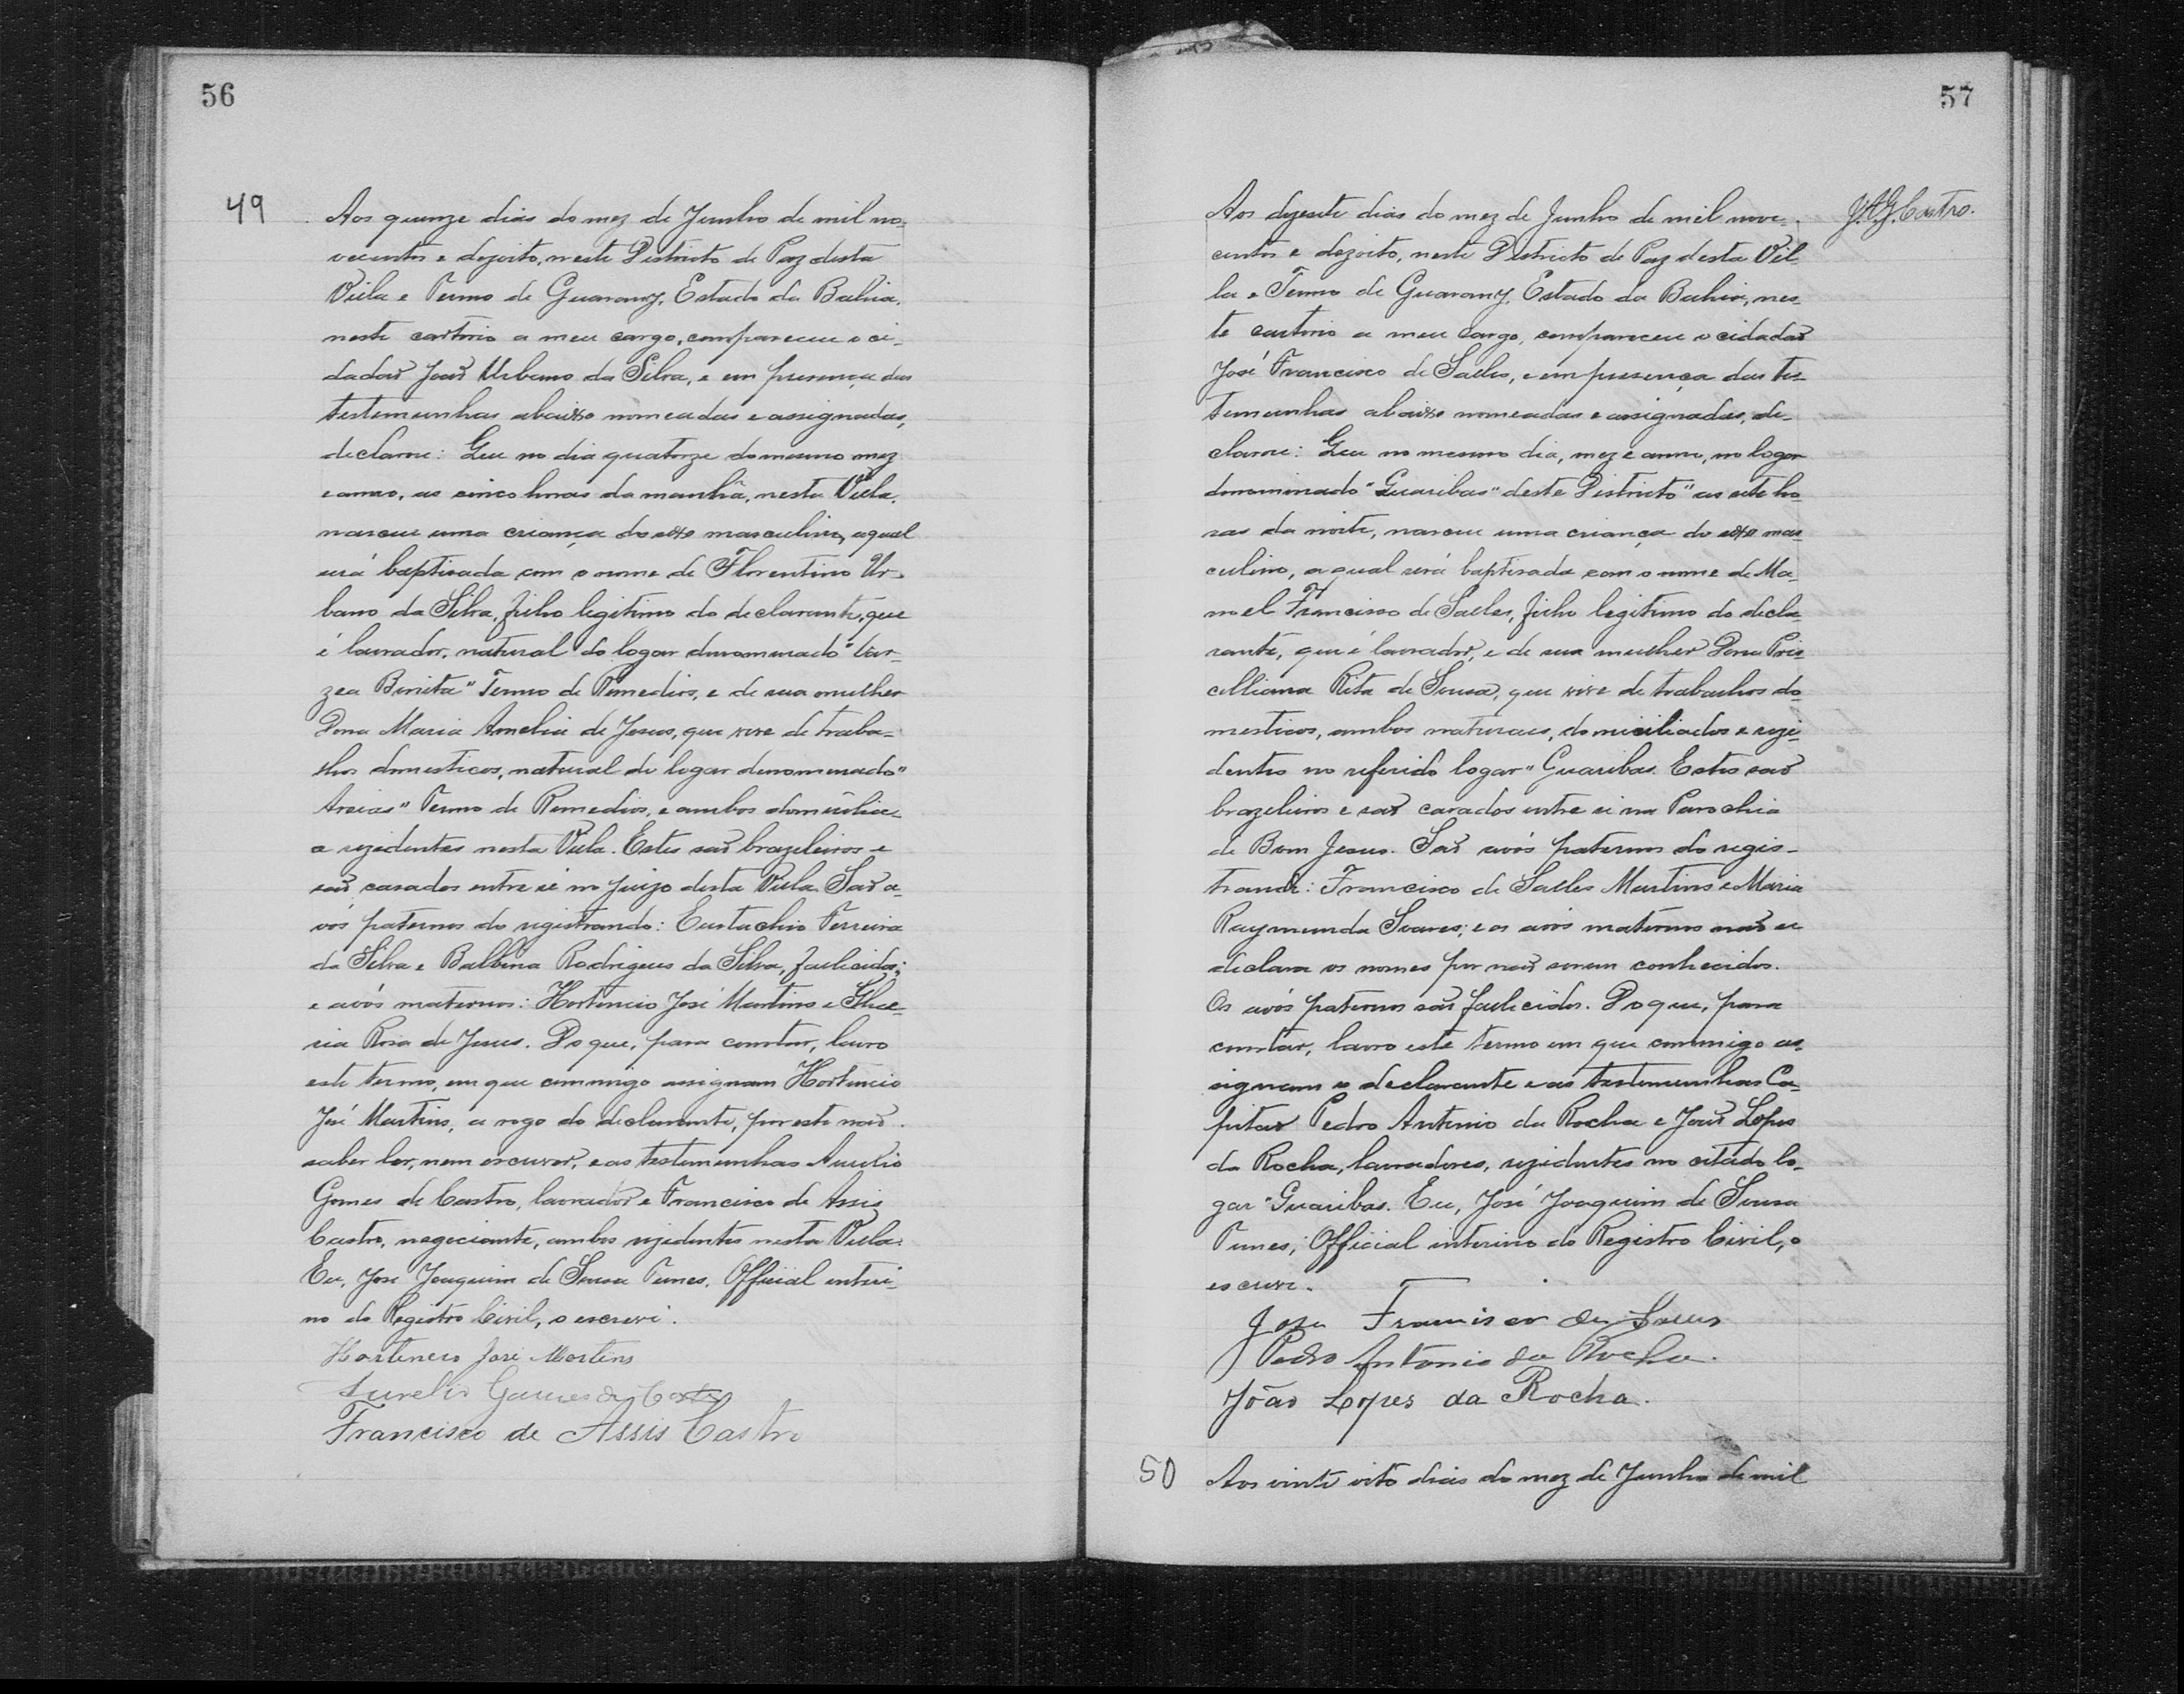 56
49
Aos quinze dias do mez de Junho de mil no-
vecentos e dezoito, neste Districto de Paz desta
Villa e Termo de Guarany, Estado da Bahia,
neste cartorio a meu cargo, compareceu o ci-
dadaõ Joaõ Urbano da Silva, e em presença das
testemunhas abaixo nomeadas e assignadas,
declarou: Que no dia quatorze do mesmo mez
e anno, as cinco horas da manhã, nesta Villa,
nasceu uma criança do sexo masculino, a qual
será baptisada com o nome de Florentino Ur-
bano da Silva, filho legitimo do declarante, que
é lavrador, natural do logar denominado "Var-
zea Bonita" Termo de Remedios, e de sua mulher
Dona Maria Amelia de Jesus, que vive de traba-
lhos domesticos, natural do logar denominado "
Areias" Termo de Remedios, e ambos domicilia-
e rezidentes nesta Villa. Estes saõ brazileiros e
saõ casados entre si no juizo desta Villa. Saõ a-
vos paternos do registrando: Eustachio Ferreira
da Silva e Balbina Rodrigues da Silva, fallecidos;
e avós maternos: Hortencio José Martins e
ria Rosa de Jesus. Do que, para constar, lavro
este termo, em que commigo assignam Hortencio
José Martins, a rogo do declarante, por este naõ
saber ler, nem escrever, e as testemunhas Aurelio
Gomes de Castro, lavrador e Francisco de Assis
Castro, negociante, ambos rezidentes nesta Villa.
Eu, José Joaquim de Sousa Tunes, Official interi-
no do Registro Civil, o escrevi.
Hortencio José Martins
Aurelio Gomes de Castro
Francisco de Assis Castro
57
J.A.G. Castro.
Aos dezesete dias do mez de Junho de mil nove-
centos e dezoito, neste Districto de Paz desta Vil-
la e Termo de Guarany, Estado da Bahia, nes-
te cartorio a meu cargo, compareceu o cidadaõ
José Francisco de Salles, e em presença das tes-
temunhas abaixo nomeadas e assignadas, de-
clarou: Que no mesmo dia, mez e anno, no logar
denominado "Guaribas" deste Districto" as sete ho-
ras da noite, nasceu uma criança do sexo mas-
culino, a qual será baptisada com o nome de Ma-
noel Francisco de Salles, filho legitimo do decla-
rante, que é lavrador, e de sua mulher Dona Pris-
cilliana Rita de Sousa, que vive de trabalhos do-
mesticos, ambos naturaes, domiciliados e rezi-
dentes no referido logar "Guaribas. Estes saõ
brazileiros e saõ casados entre si na Parochia
de Bom Jesus. Saõ avós paternos do regis-
trando: Francisco de Salles Martins e Maria
Raymunda Soares; e os avós maternos naõ se
declara os nomes por naõ serem conhecidos.
Os avós paternos saõ fallecidos. Do que, para
constar, lavro este termo em que commigo as-
signam o declarante e as testemunhas Ca-
pitaõ Pedro Antonio da Rocha e Joaõ Lopes
da Rocha, lavradores, rezidentes no citado lo-
gar "Guaribas. Eu, José Joaquim de Sousa
Tunes, Official interino do Registro Civil, o
escrevi.
Jose Francisco de Salles
Pedro Antonio da Rocha.
João Lopes da Rocha.
50
Aos vinte oito dias do mez de Junho de mil